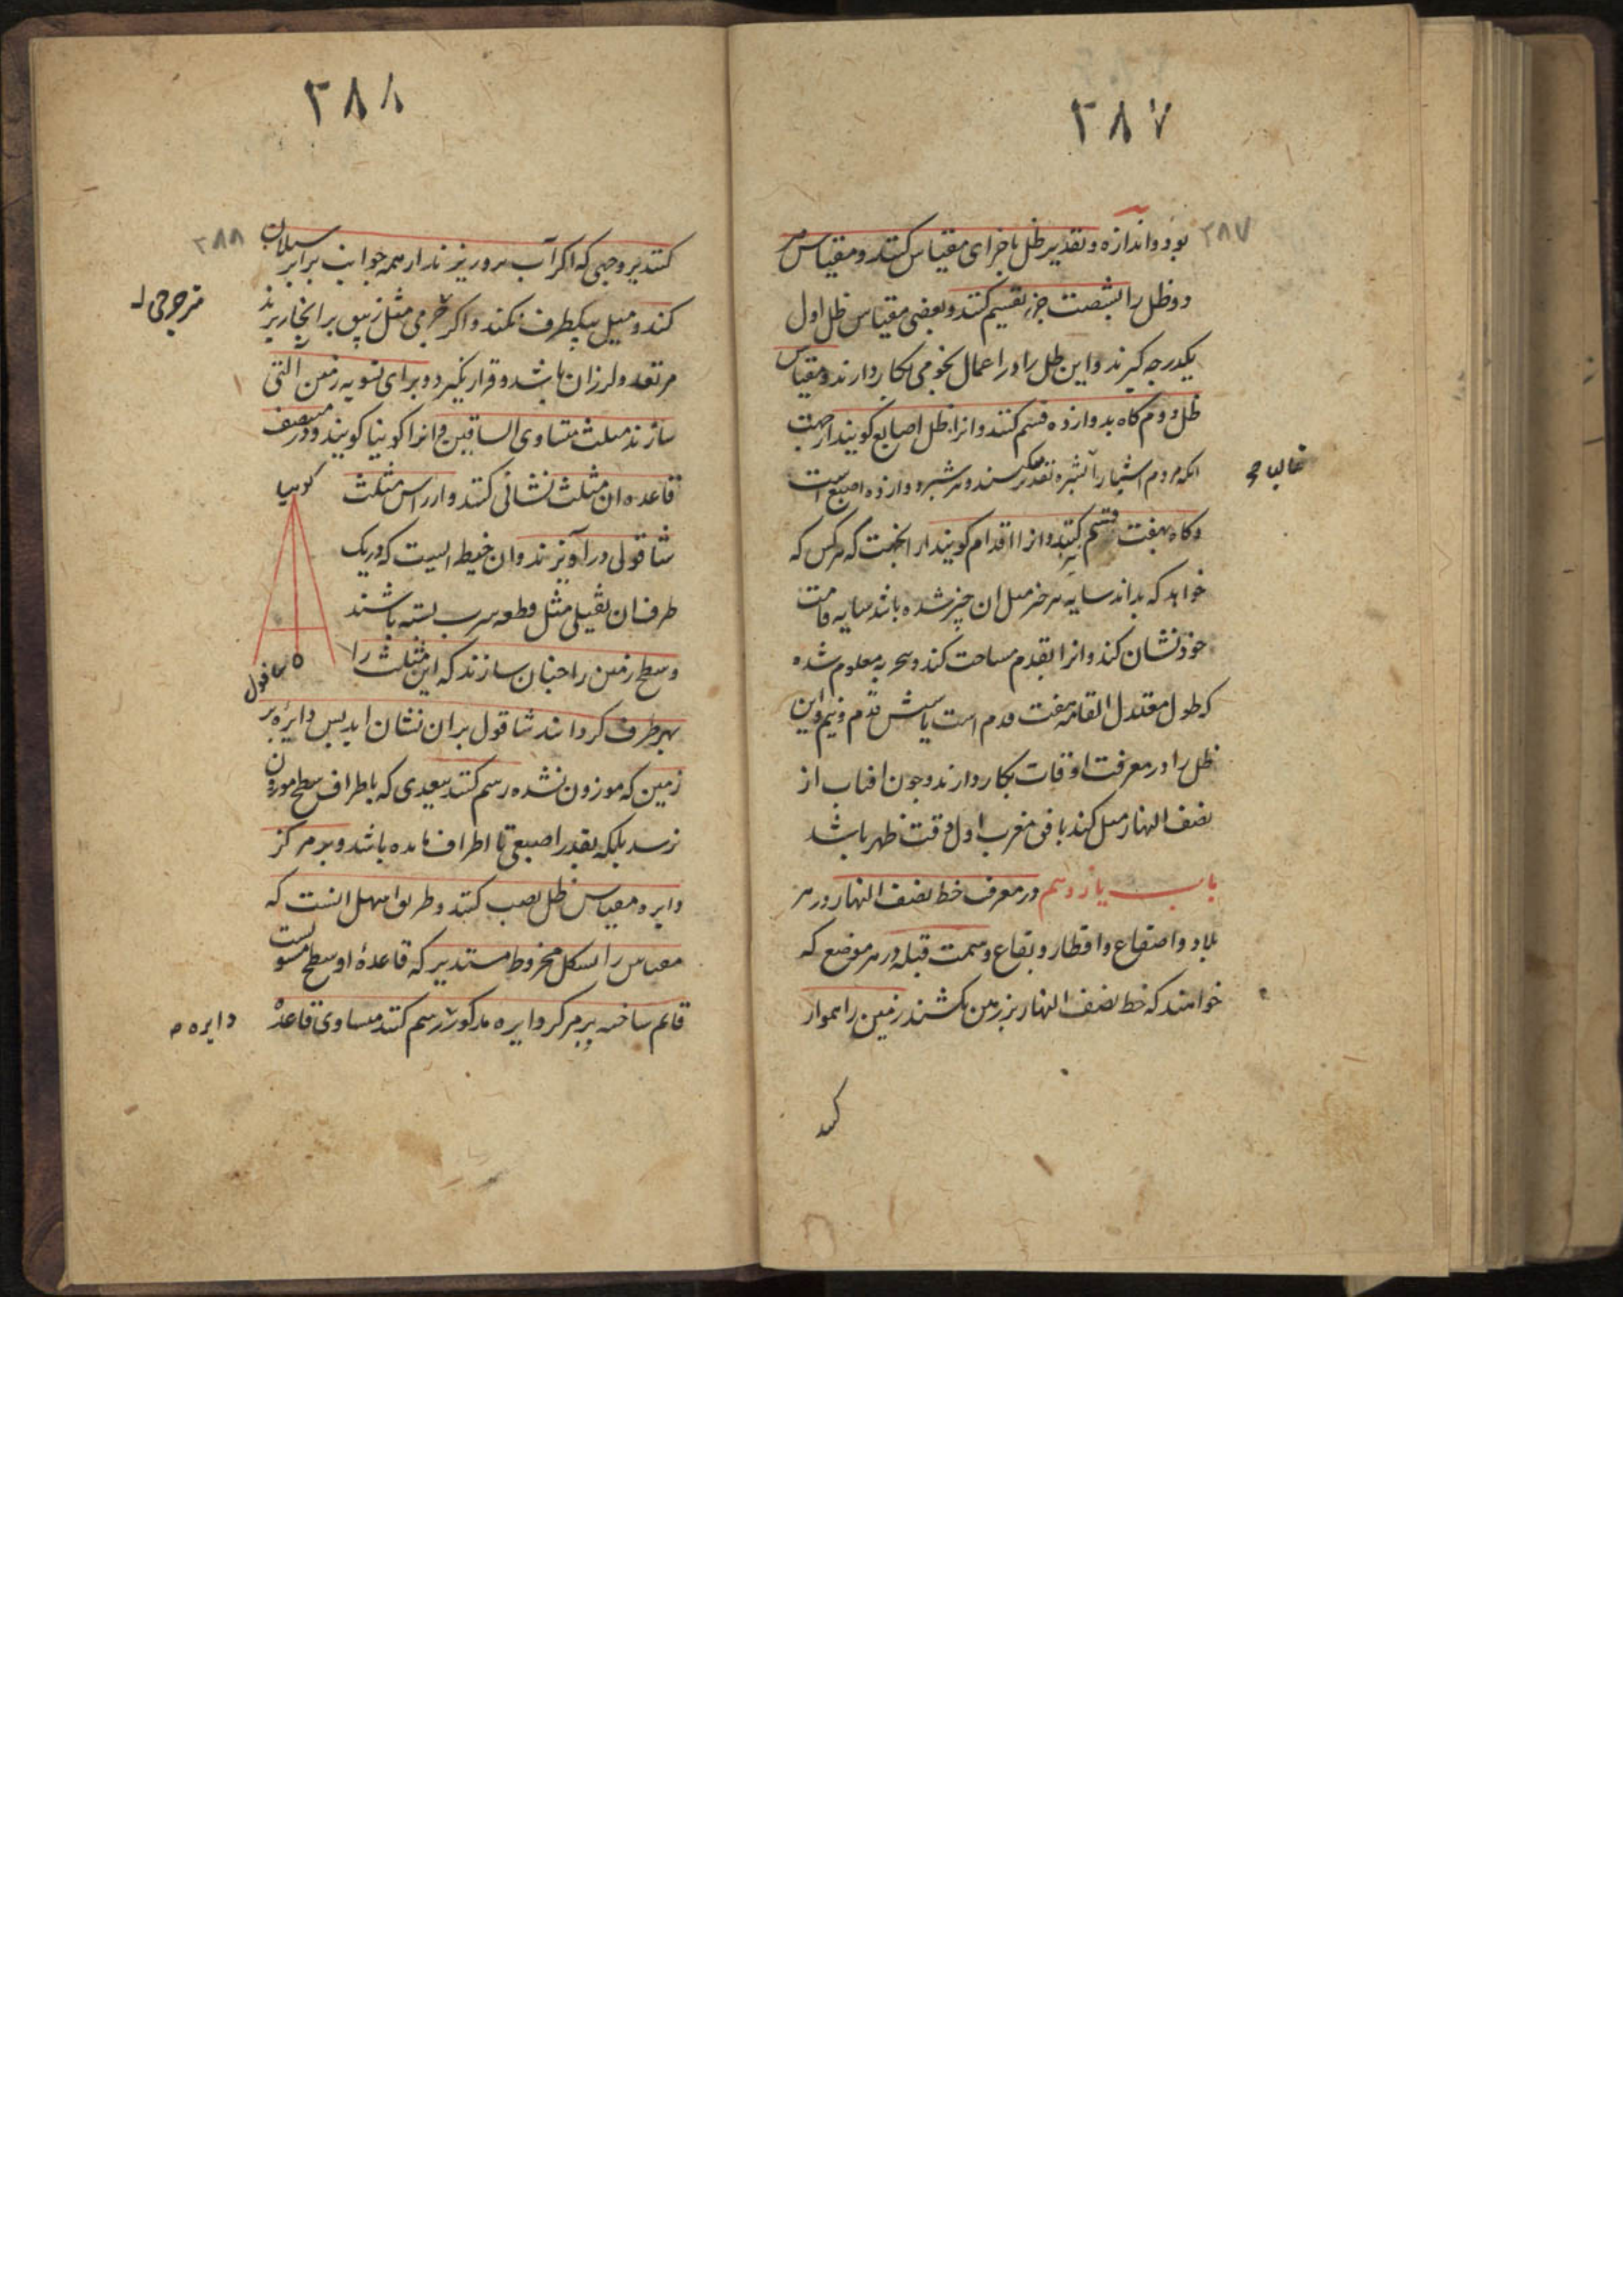 ۲۸۷
۲۸۷
بود و اندازه و تقدیر ظل باجزای مقیاس کنند و مقیاس هر
دو ظل را بشصت جزء تقسیم کنند و بعضی مقیاس ظل اول
یکدرجه گیرند و این ظل را در اعمال نجومی بکار دارند و مقیاس
ظل دوم گاه بدوازده قسم کنند و انرا ظل اصابع گویند از جهت
انکه مردم اشیا را بشبر تقدیر کنند و هر شبر دوازده اصبع است
غالبا
و گاه بهفت قسم کنند و انرا اقدام گویند از انجهت که هر کس که
خواهد که بداند سایه هر چیز مثل ان چیز شده باشد سایه قامت
خود نشان کند و انرا بقدم مساحت کند و بتجربه معلوم شده
که طول معتدل القامه هفت قدم است یا شش قدم و نیم و این
ظل را در معرفت اوقات بکار دارند و چون افتاب از
نصف النهار میل کند بافق مغرب اول وقت ظهر باشد
باب یازدهم در معرفت خط نصف النهار در هر
بلاد و اصقاع و اقطار و بقاع و سمت قبله در هر موضع که
خواهند که خط نصف النهار بر زمین بکشند زمین را هموار
کند
۲۸۸
۲۸۸
کنند بر وجهی که اگر آب برو ریزند از همه جوانب برابر سیلان
کند و میل بیکطرف نکند و اگر جرمی مثل زیبق بر انجا ریزند
مرتعد و لرزان باشد و قرار نگیرد و برای تسویه زمین آلتی
سازند مثلث متساوی الساقین و انرا کونیا گویند و در منتصف
قاعده ان مثلث نشانی کنند و از راس مثلث
کونیا
شاقولی در آویزند و ان خیطی است که در یک
طرف ان ثقیلی مثل قطعه سرب بسته باشند
و سطح زمین را چنان سازند که این مثلث را
شاقول
بهر طرف گردانند شاقول بران نشان اید پس دایره بر
زمین که موزون شده رسم کنند ببعدی که باطراف سطح موزون
نرسد بلکه بقدر اصبعی تا اطراف مانده باشد و بر مرکز
دایره مقیاس ظل نصب کنند و طریق سهل انست که
مقیاس را بشکل مخروط مستدیر که قاعدهٔ او سطح مستویست
قائم ساخته بر مرکز دایره مذکور رسم کنند مساوی قاعدهٔ
دایره